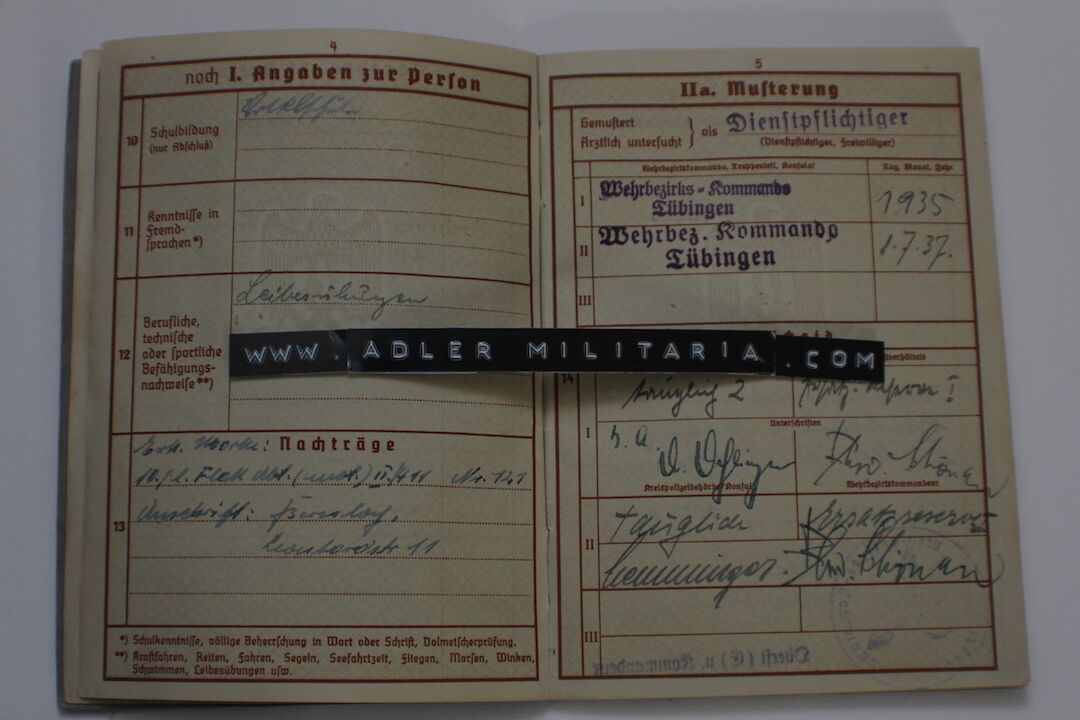 4
noch I. Angaben zur Person
10 Schulbildung
(nur Abschluß)
11 Kenntnisse in
Fremd-
sprachen *)
Leibesübungen
12 Berufliche,
technische
oder sportliche
Befähigungs-
nachweise **)
Erk. Marke: Nachträge
Nr. 121
13 Anschrift:
Leonhardstr 11
*) Schulkenntnisse, völlige Beherrschung in Wort oder Schrift, Dolmetscherprüfung.
**) Kraftfahren, Reiten, Fahren, Segeln, Seefahrtzeit, Fliegen, Morsen, Winken,
Schwimmen, Leibesübungen usw.
5
IIa. Musterung
Gemustert
Ärztlich untersucht } als Dienstpflichtiger
(Dienstpflichtiger, Freiwilliger)
Wehrbezirkskommando, Truppenteil, Konsulat Tag, Monat, Jahr
I Wehrbezirks-Kommando
Tübingen 1935
II Wehrbez. Kommando
Tübingen 1.7.37.
III
WWW.ADLER MILITARIA.COM
14
tauglich 2 Ersatz-Reserve I
Unterschriften
I
Kreispolizeibehörde, Konsul Wehrbezirkskommandeur
II tauglich Ersatzreserve
III
Oberstl (E) u. Kommandeur